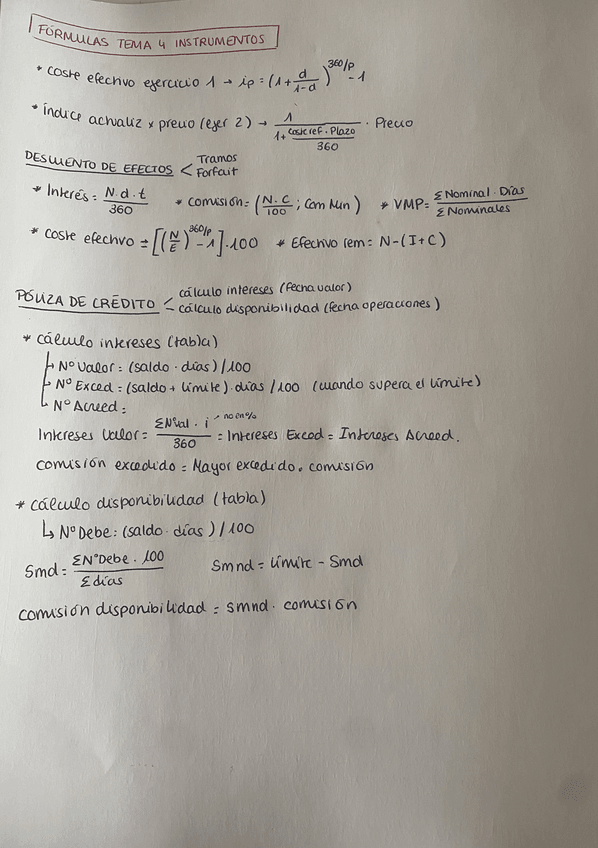 FÓRMULAS TEMA 4 INSTRUMENTOS
* coste efectivo ejercicio 1 → ip = (1 + d/1-d)^360/p - 1
* Índice actualiz x precio (ejer 2) → 1 / (1 + coste ref · Plazo/360) · Precio
DESCUENTO DE EFECTOS < Tramos
Forfait
* Interés = N·d·t/360 * comisión = (N·C/100 ; Com Min) * VMP = Σ Nominal · Días/Σ Nominales
* coste efectivo = [(N/E)^360/p - 1] · 100 * Efectivo rem = N - (I + C)
PÓLIZA DE CRÉDITO < cálculo intereses (fecha valor)
cálculo disponibilidad (fecha operaciones)
* cálculo intereses (tabla)
↳ Nº Valor = (saldo · días) / 100
↳ Nº Exced = (saldo + límite) · días / 100 (cuando supera el límite)
↳ Nº Acreed =
Intereses Valor = ΣNºVal · i → no en %/360 = Intereses Exced = Intereses Acreed.
comisión excedido = Mayor excedido · comisión
* cálculo disponibilidad (tabla)
↳ Nº Debe = (saldo · días) / 100
Smd = ΣNº Debe · 100/Σ días Smnd = límite - Smd
comisión disponibilidad = Smnd · comisión